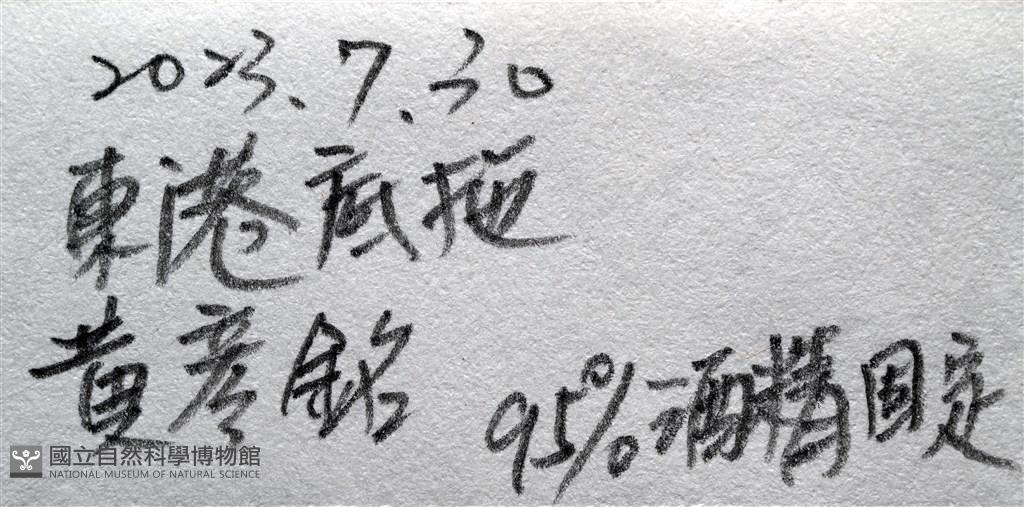 2023.7.30
東港底拖
黃彥銘
95%酒精固定
國立自然科學博物館
NATIONAL MUSEUM OF NATURAL SCIENCE